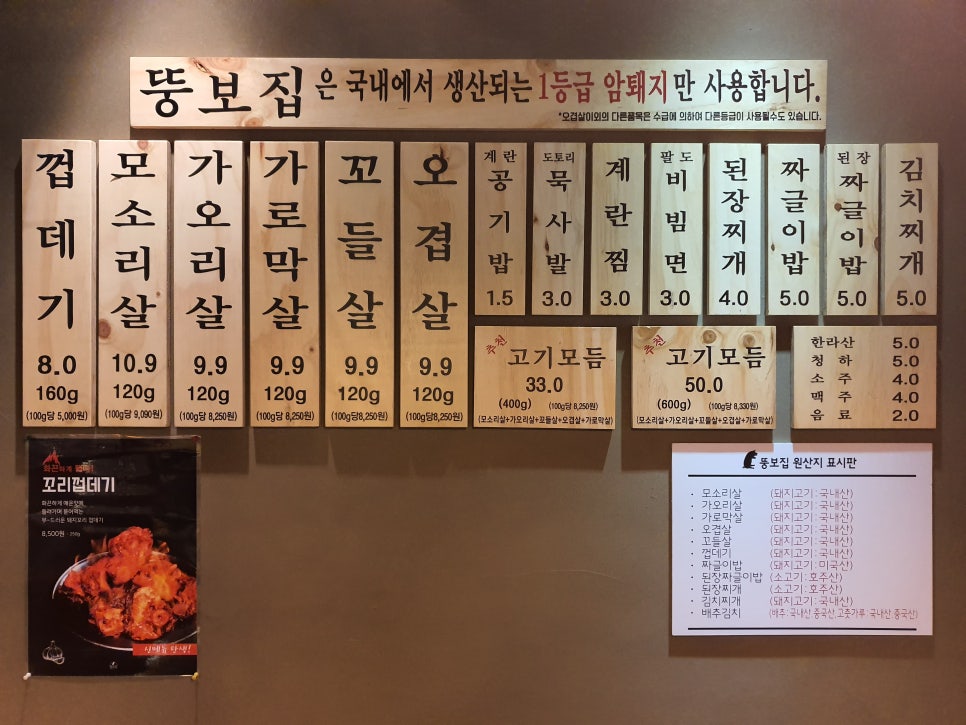 뚱보집은 국내에서 생산되는 1등급 암퇘지만 사용합니다.
*오겹살이외의 다른품목은 수급에 의하여 다른등급이 사용될수도 있습니다.
껍데기
8.0
160g
(100g당 5,000원)
모소리살
10.9
120g
(100g당 9,090원)
가오리살
9.9
120g
(100g당 8,250원)
가로막살
9.9
120g
(100g당 8,250원)
꼬들살
9.9
120g
(100g당8,250원)
오겹살
9.9
120g
(100g당8,250원)
계란
공기밥
1.5
도토리
묵사발
3.0
계란찜
3.0
팔도
비빔면
3.0
된장찌개
4.0
짜글이밥
5.0
된장
짜글이밥
5.0
김치찌개
5.0
추천
고기모듬
33.0
(400g) (100g당 8,250원)
(모소리살+가오리살+꼬들살+오겹살+가로막살)
추천
고기모듬
50.0
(600g) (100g당 8,330원)
(모소리살+가오리살+꼬들살+오겹살+가로막살)
한라산 5.0
청하 5.0
소주 4.0
맥주 4.0
음료 2.0
화끈하게
꼬리껍데기
화끈하게 매운맛에
돌려가며 뜯어먹는
부~드러운 돼지꼬리 껍데기
8,500원 · 250g
신메뉴 탄생!
뚱보집 원산지 표시판
· 모소리살 (돼지고기:국내산)
· 가오리살 (돼지고기:국내산)
· 가로막살 (돼지고기:국내산)
· 오겹살 (돼지고기:국내산)
· 꼬들살 (돼지고기:국내산)
· 껍데기 (돼지고기:국내산)
· 짜글이밥 (돼지고기:미국산)
· 된장짜글이밥 (소고기:호주산)
· 된장찌개 (소고기:호주산)
· 김치찌개 (돼지고기:국내산)
· 배추김치 (배추:국내산,중국산,고춧가루:국내산,중국산)